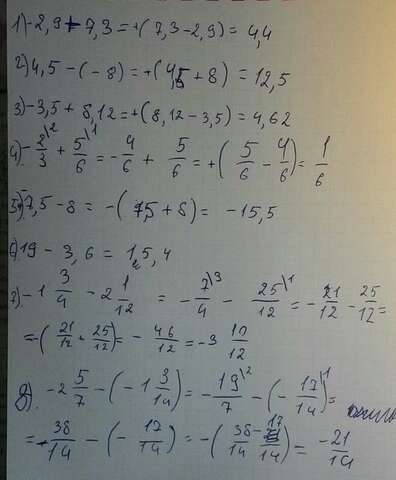 1) -2,9 + 7,3 = +(7,3 - 2,9) = 4,4
2) 4,5 - (-8) = +(4,5 + 8) = 12,5
3) -3,5 + 8,12 = +(8,12 - 3,5) = 4,62
4) -2/3\2 + 5/6\1 = -4/6 + 5/6 = +(5/6 - 4/6) = 1/6
5) -7,5 - 8 = -(7,5 + 8) = -15,5
6) 19 - 3,6 = 15,4
7) -1 3/4 - 2 1/12 = -7/4\3 - 25/12\1 = -21/12 - 25/12 =
= -(21/12 + 25/12) = -46/12 = -3 10/12
8) -2 5/7 - (-1 3/14) = -19/7\2 - (-17/14\1) =
= -38/14 - (-17/14) = -(38/14 - 17/14) = -21/14